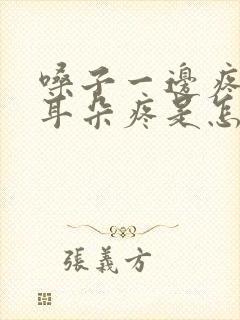 嗓子一邊疼
耳朵疼是怎
張義方